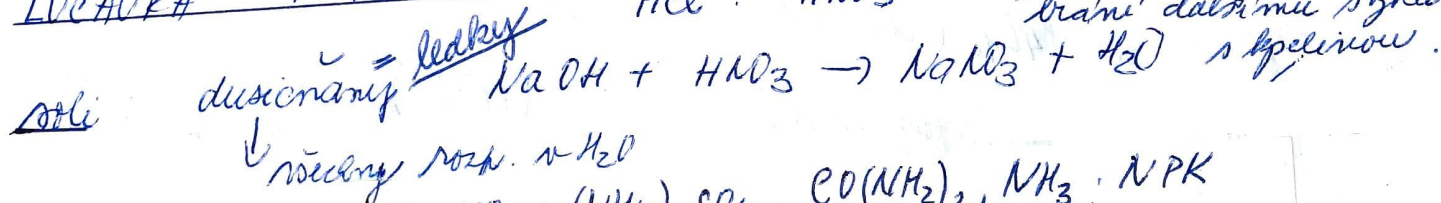 LUČAVKA HCl : HNO3 brání dalšímu styku
dusičnany = ledky NaOH + HNO3 → NaNO3 + H2O s kyselinou.
soli
↓ všechny rozp. v H2O
CO(NH2)2, NH3, NPK